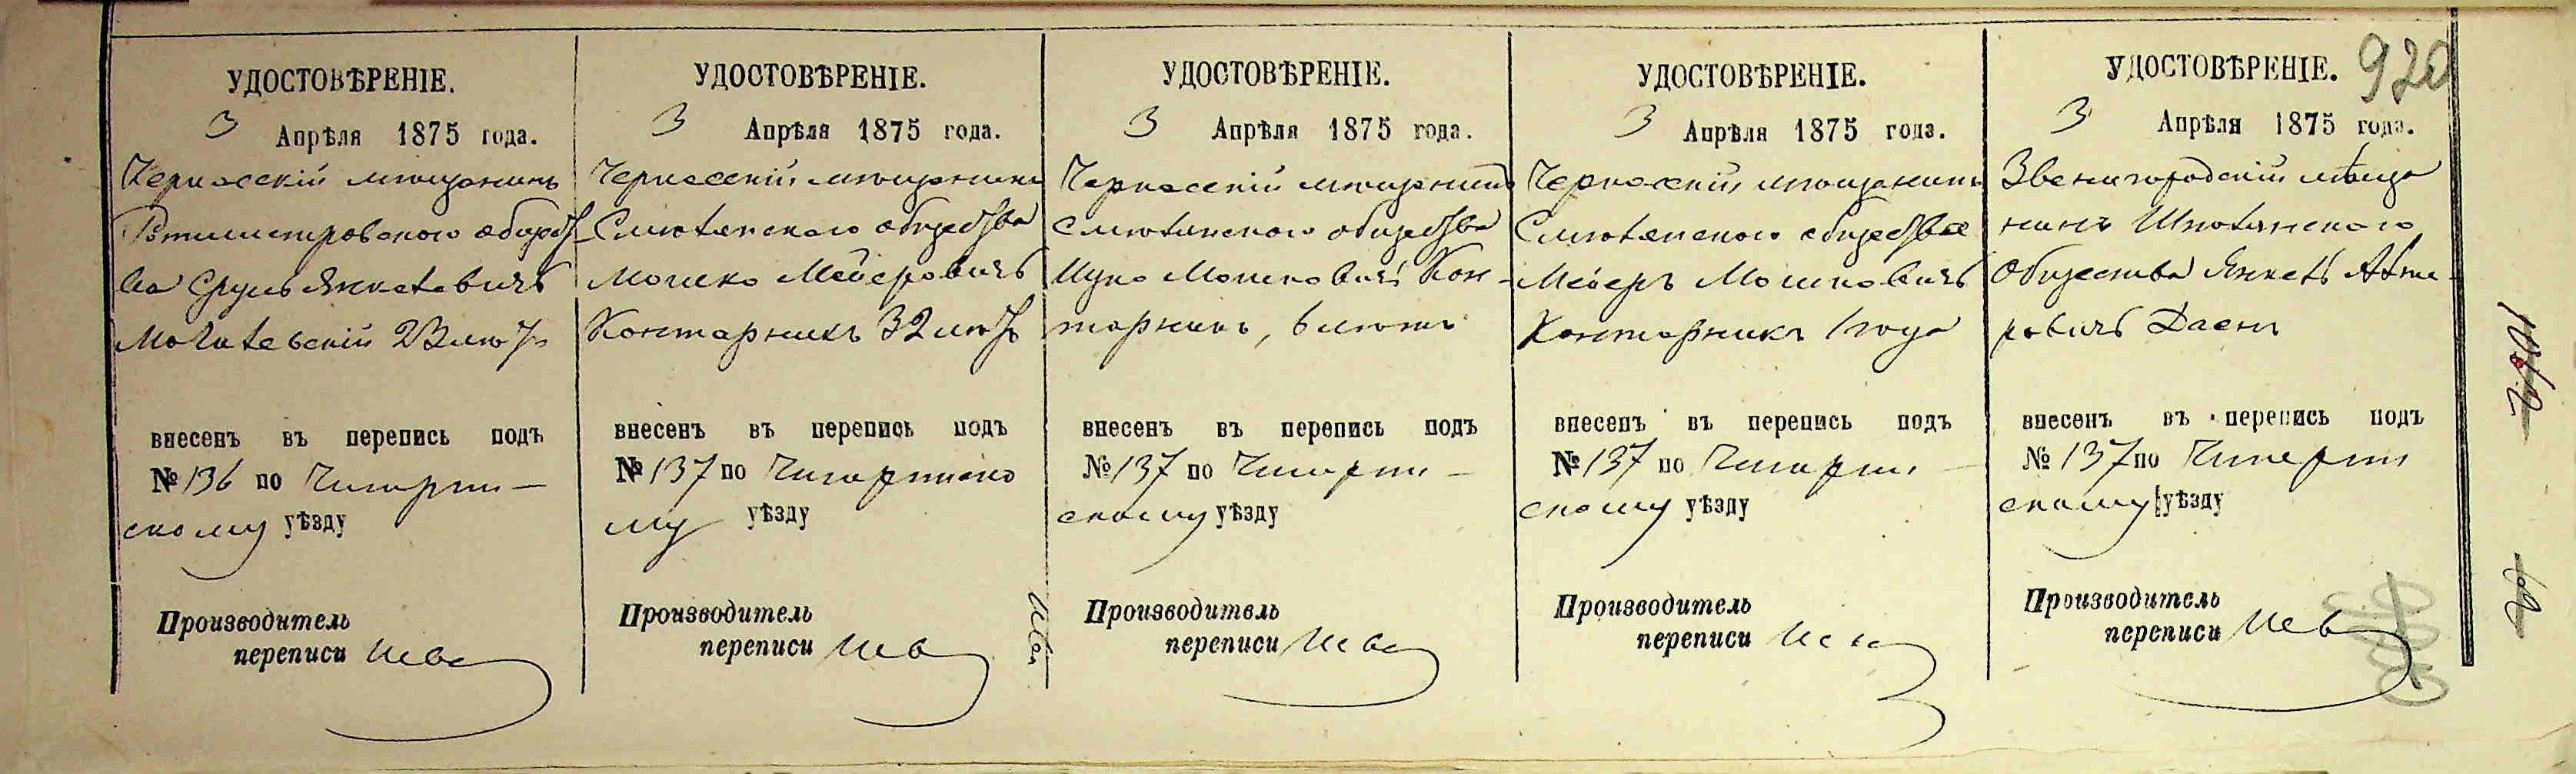 920
УДОСТОВѢРЕНІЕ.
3 Апрѣля 1875 года.
Черкасскій мѣщанинъ
общест-
ва Сруль Янкелевичъ
Могилевскій 23 лѣтъ
внесенъ въ перепись подъ
№ 136 по Чигирин-
скому уѣзду
Производитель
переписи
УДОСТОВѢРЕНІЕ.
3 Апрѣля 1875 года.
Черкасскій мѣщанинъ
Смѣлянскаго общества
Мошко Мейеровичъ
Контарникъ 32 лѣтъ
внесенъ въ перепись подъ
№ 137 по Чигиринско
му уѣзду
Производитель
переписи
УДОСТОВѢРЕНІЕ.
3 Апрѣля 1875 года.
Черкасскій мѣщанинъ
Смѣлянскаго общества
Ицко Мошковичъ Кон-
тарникъ, 6 лѣтъ
внесенъ въ перепись подъ
№ 137 по Чигирин-
скому уѣзду
Производитель
переписи
УДОСТОВѢРЕНІЕ.
3 Апрѣля 1875 года.
Черкасскій мѣщанинъ
Смѣлянскаго общества
Мейеръ Мошковичъ
Контарникъ 1 года
внесенъ въ перепись подъ
№ 137 по Чигирин-
скому уѣзду
Производитель
переписи
УДОСТОВѢРЕНІЕ.
3 Апрѣля 1875 года.
Звенигородскій мѣща
нинъ Шполянскаго
Общества Янкель
ровичъ
внесенъ въ перепись подъ
№ 137 по Чигирин
скому уѣзду
Производитель
переписи